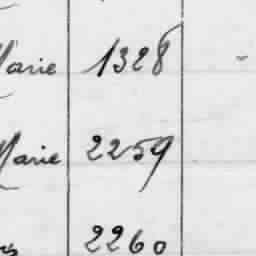 Marie 1328 -
Marie 2259
2260